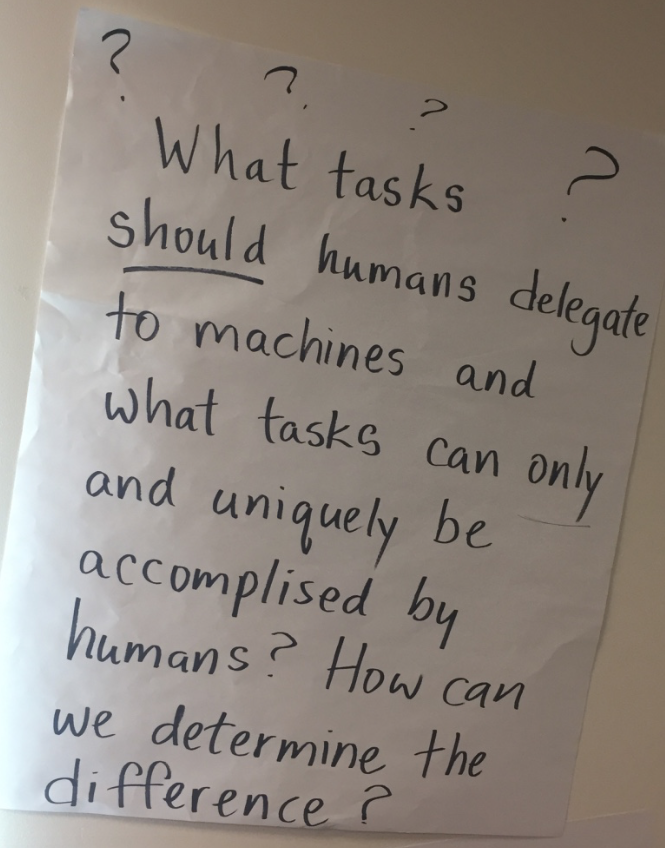 ? ? ? ?
What tasks
should humans delegate
to machines and
what tasks can only
and uniquely be
accomplised by
humans? How can
we determine the
difference?